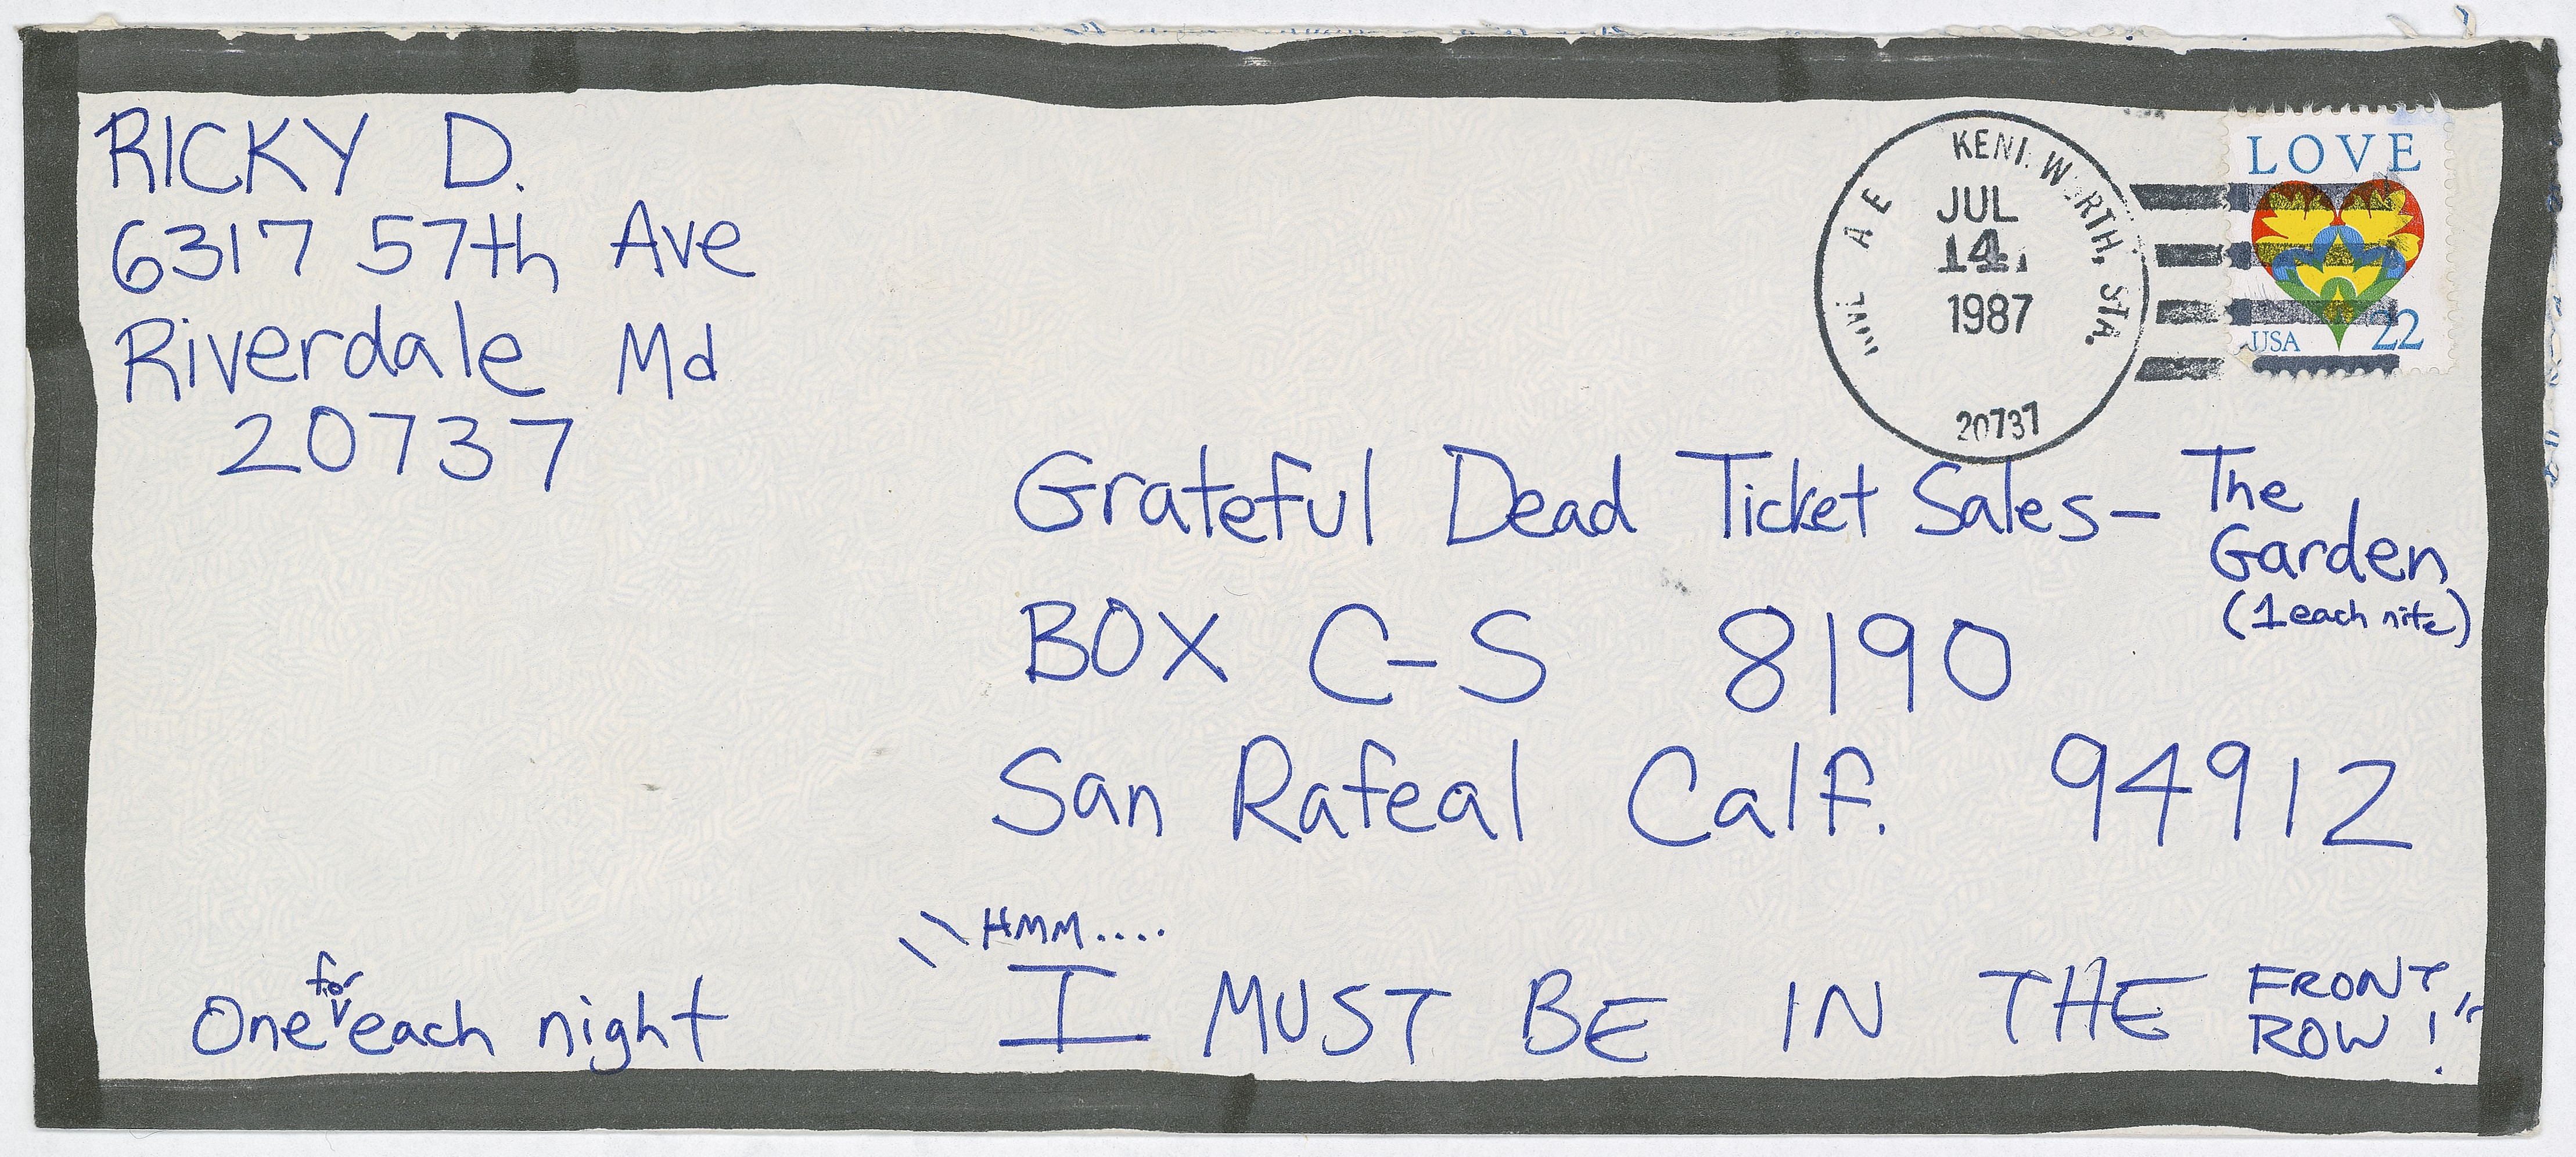 RICKY D.
6317 57th Ave
Riverdale Md
20737
KEN
JUL
14
1987
STA.
20737
LOVE
USA 22
Grateful Dead Ticket Sales — The
Garden
(1 each nite)
BOX C-S 8190
San Rafeal Calf. 94912
"HMM....
I MUST BE IN THE FRONT
ROW!"
for
One v each night